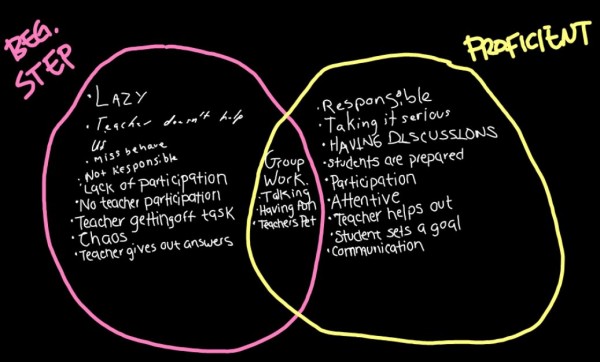 BEG.
STEP
PROFICIENT
• LAZY
• Teacher doesn't help
us
• miss behave
• Not Responsible
• Lack of participation
• No teacher participation
• Teacher getting off task
• Chaos
• Teacher gives out answers
Group
Work.
• Talking
• Having fun
• Teachers Pet
• Responsible
• Taking it serious
• HAVING DISCUSSIONS
• students are prepared
• Participation
• Attentive
• Teacher helps out
• Student sets a goal
• Communication